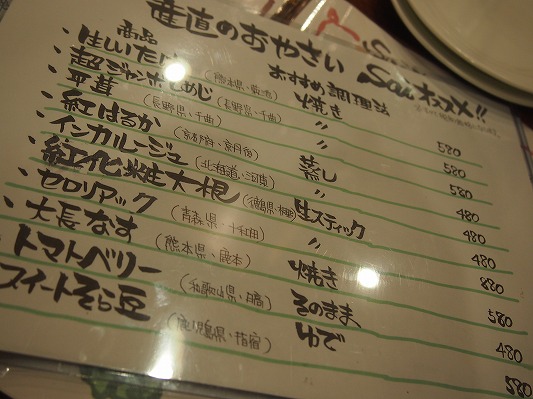 産直のおやさい Sawオススメ!!
商品 おすすめ調理法
・生しいたけ (熊本県・菊池) 焼き 580
・超ジャンボなめじ (長野県・千曲) 〃 580
・平茸 (長野県・千曲) 〃 580
・紅はるか 蒸し 480
・インカルージュ (北海道・) 〃 480
・紅化粧大根 (徳島県・) 生スティック 480
・セロリアック (青森県・十和田) 〃 880
・大長なす (熊本県・鹿本) 焼き 580
・トマトベリー (和歌山県・) そのまま 480
スイートそら豆 (鹿児島県・指宿) ゆで 580